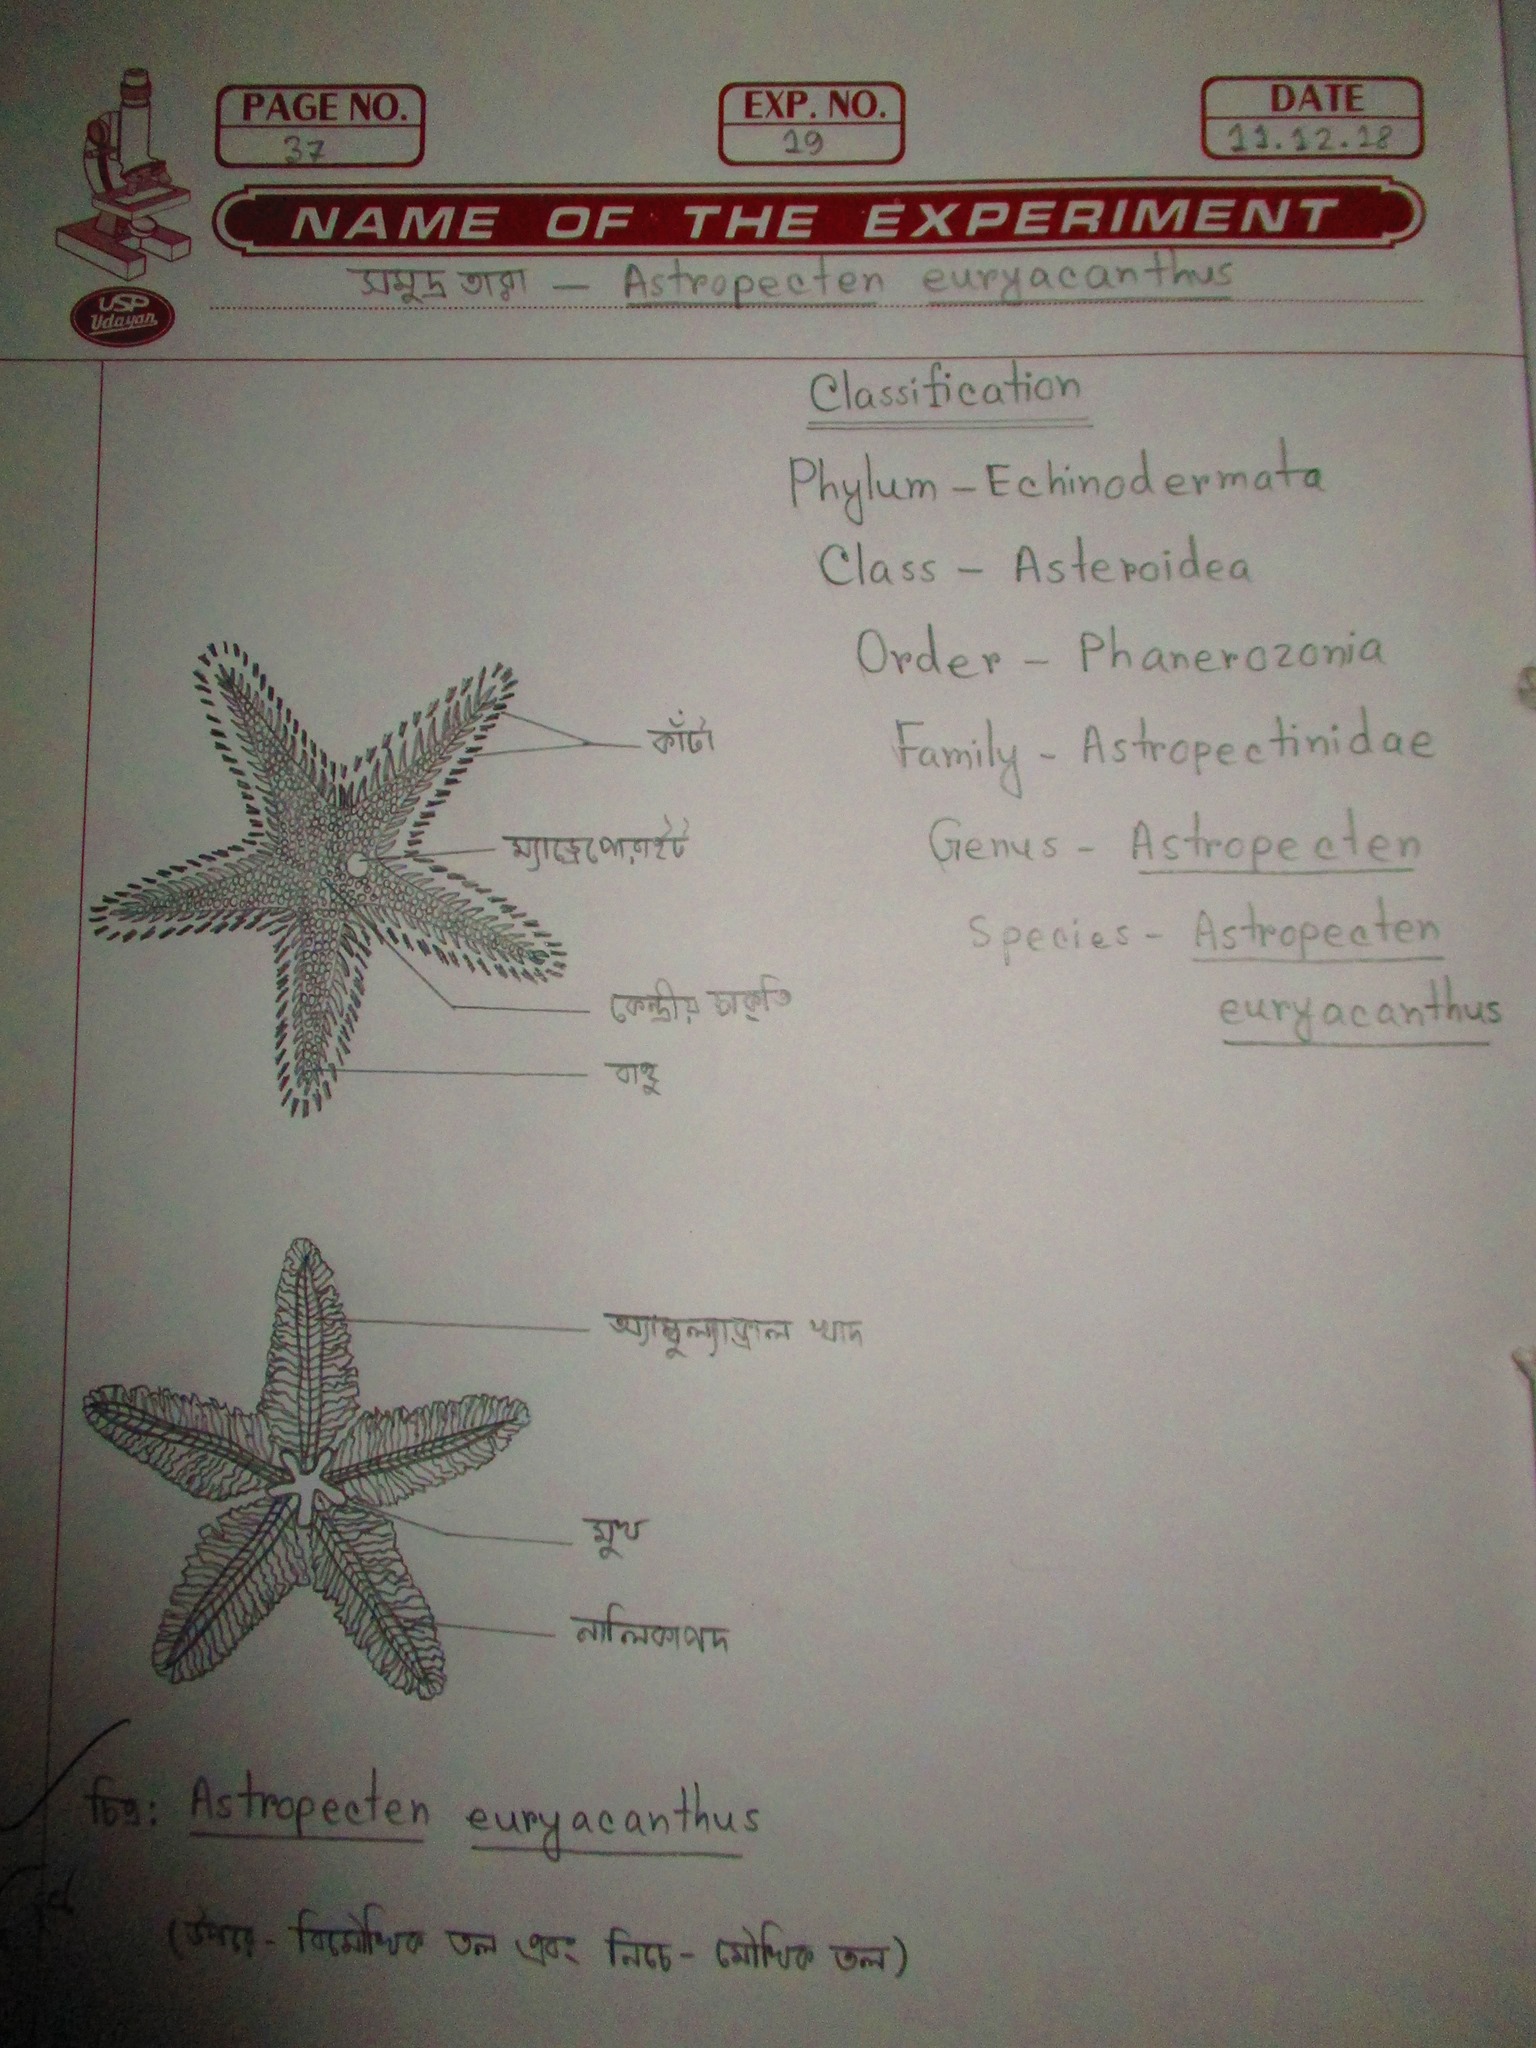 PAGE NO.
37
EXP. NO.
19
DATE
11.12.18
NAME OF THE EXPERIMENT
USP
Udayan
সমুদ্র তারা – Astropecten euryacanthus
Classification
Phylum – Echinodermata
Class – Asteroidea
Order – Phanerozonia
Family - Astropectinidae
Genus - Astropecten
Species - Astropecten
euryacanthus
কাঁটা
ম্যাড্রেপোরাইট
কেন্দ্রীয় চাকতি
বাহু
অ্যাম্বুল্যাক্রাল খাদ
মুখ
নালিকাপদ
চিত্র: Astropecten euryacanthus
(উপরে - বিমৌখিক তল এবং নিচে - মৌখিক তল)